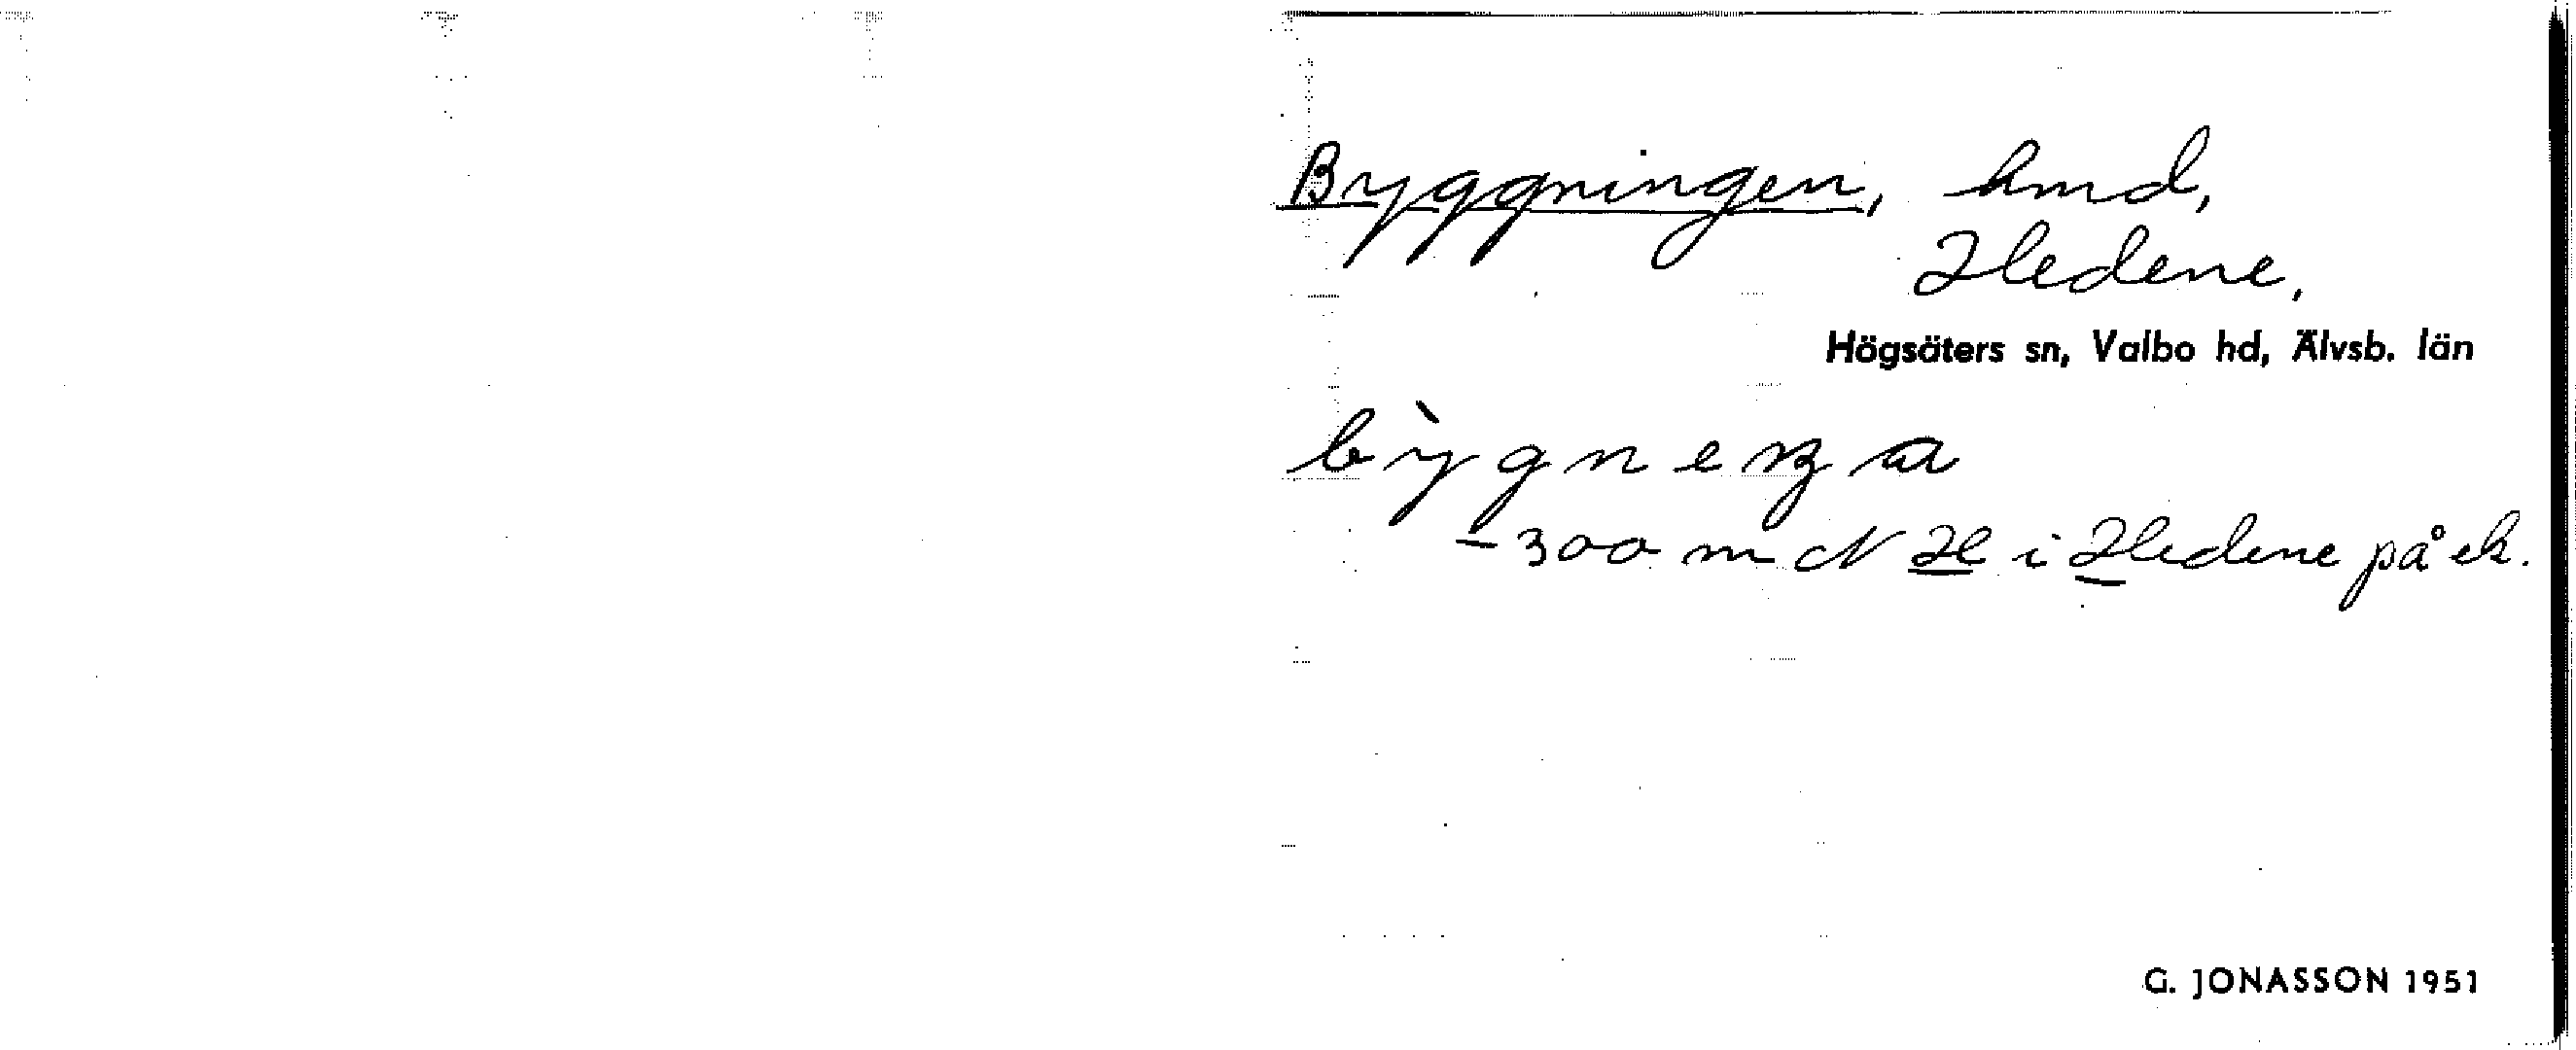 Byggningen, hmd,
Hedene,
Högsäters sn, Valbo hd, Älvsb. län
bỳgneŋa
- 300 m N H i Hedene på ek.
G. JONASSON 1951